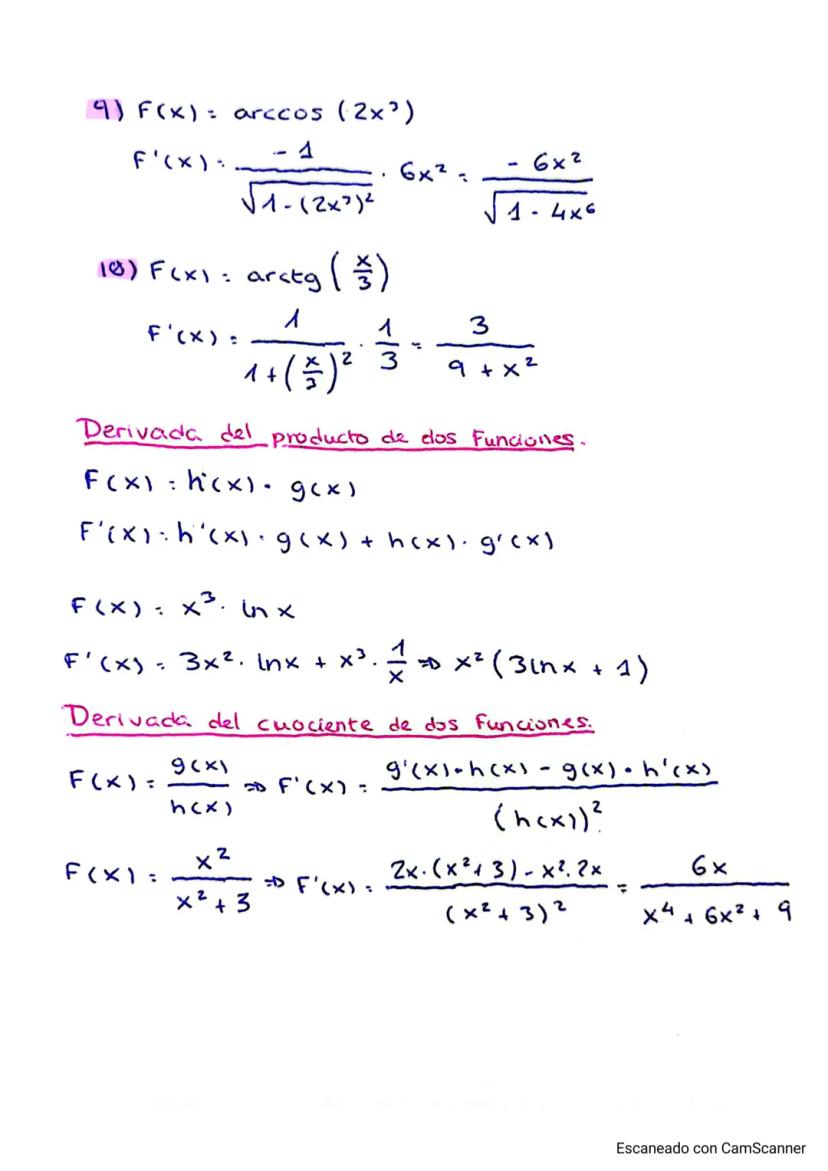 9) F(x) = arccos (2x³)
F'(x) = -1 / √(1-(2x³)²) · 6x² = -6x² / √(1-4x⁶)
10) F(x) = arctg (x/3)
F'(x) = 1 / (1+(x/3)²) · 1/3 = 3 / (9 + x²)
Derivada del producto de dos Funciones.
F(x) = h(x) · g(x)
F'(x) = h'(x) · g(x) + h(x) · g'(x)
F(x) = x³ · ln x
F'(x) = 3x² · lnx + x³ · 1/x ⇒ x² (3lnx + 1)
Derivada del cuociente de dos Funciones.
F(x) = g(x) / h(x) ⇒ F'(x) = (g'(x) · h(x) - g(x) · h'(x)) / (h(x))²
F(x) = x² / (x² + 3) ⇒ F'(x) = (2x · (x² + 3) - x² · 2x) / (x² + 3)² = 6x / (x⁴ + 6x² + 9)
Escaneado con CamScanner